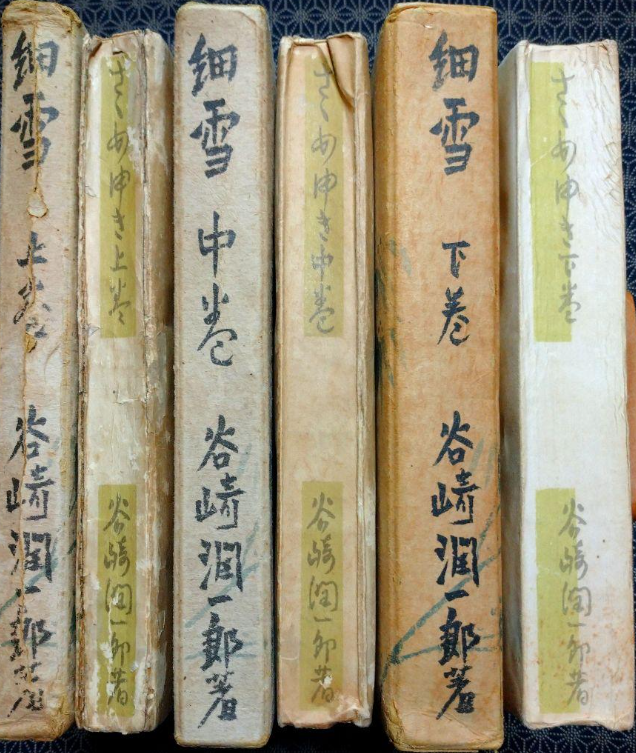 細雪 上巻 谷崎潤一郎著
さゝめゆき上巻 谷崎潤一郎著
細雪 中巻 谷崎潤一郎著
さゝめゆき中巻 谷崎潤一郎著
細雪 下巻 谷崎潤一郎著
さゝめゆき下巻 谷崎潤一郎著